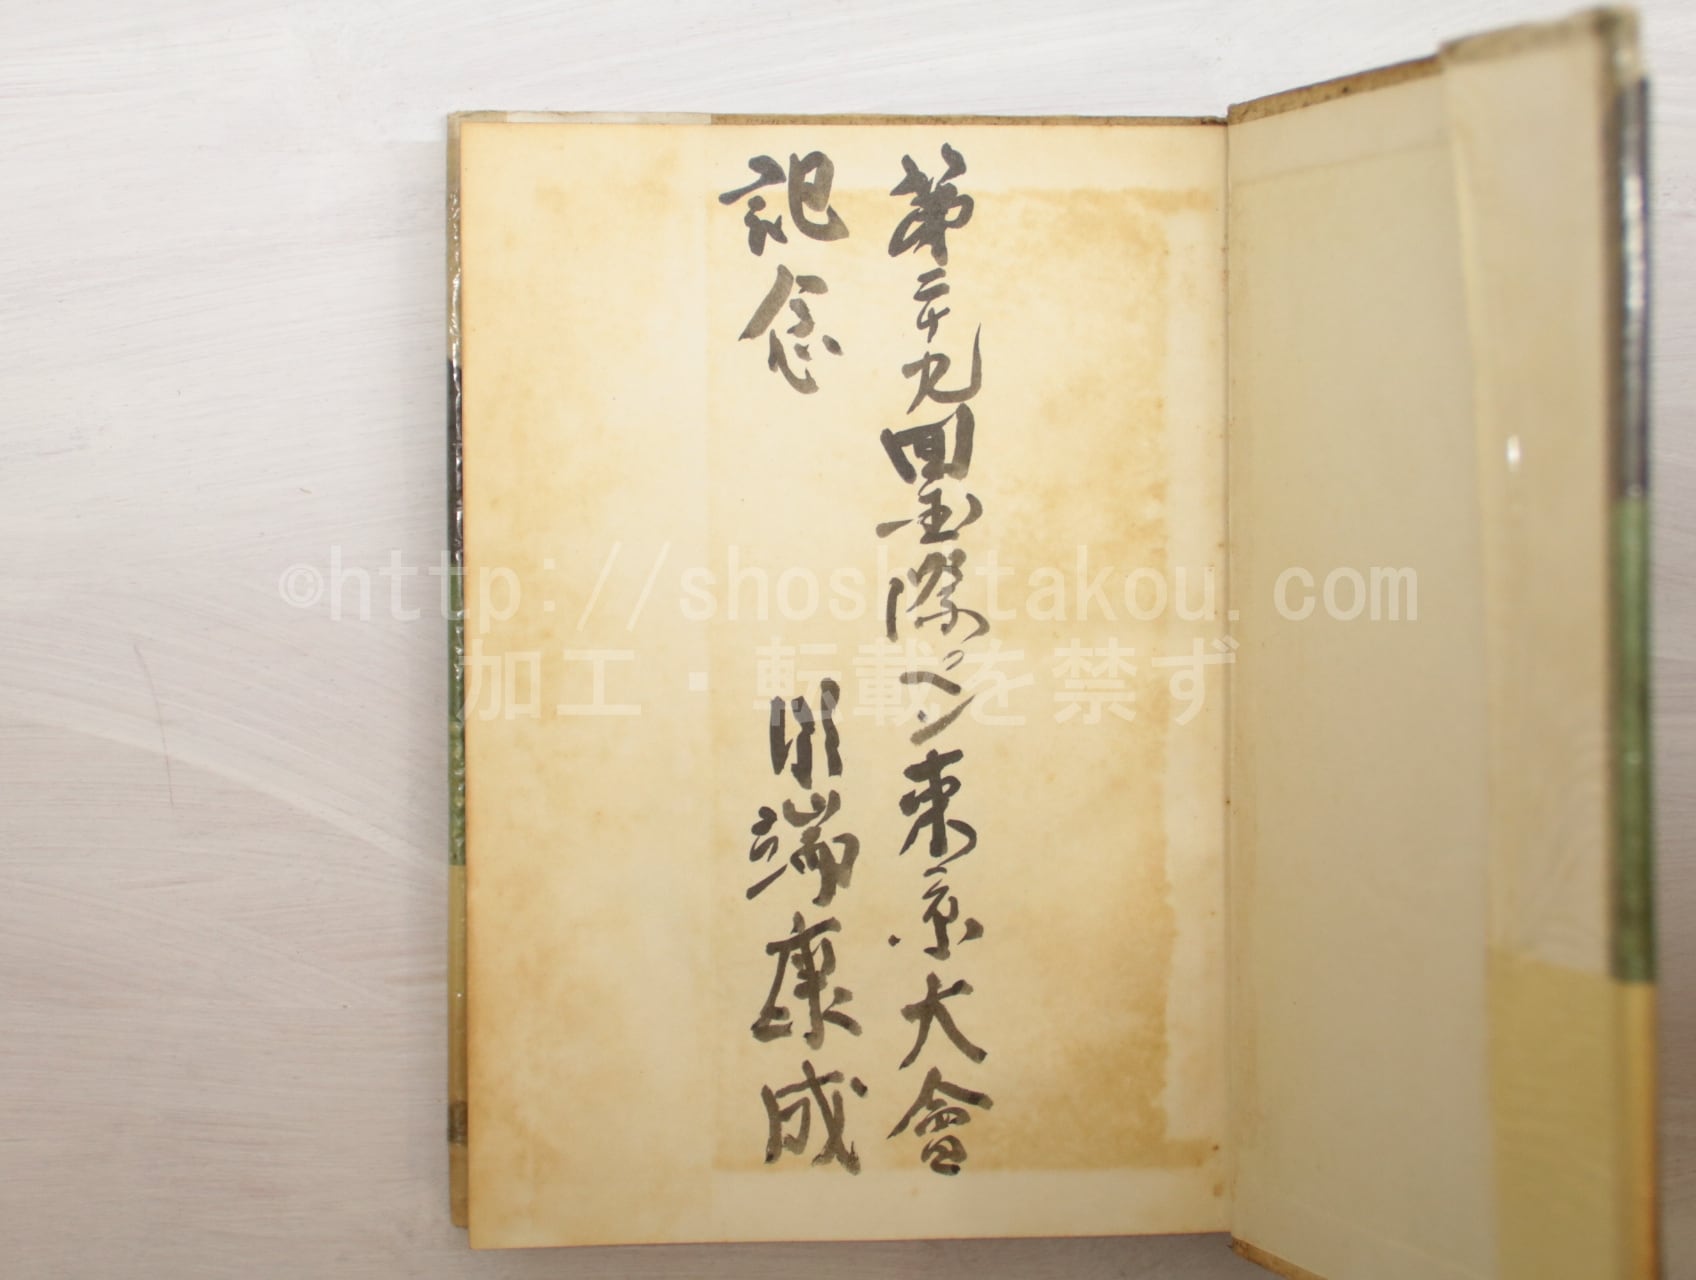 第二十九回国際ペン東京大會
記念
川端康成
©http://shoshitakou.com
加工・転載を禁ず